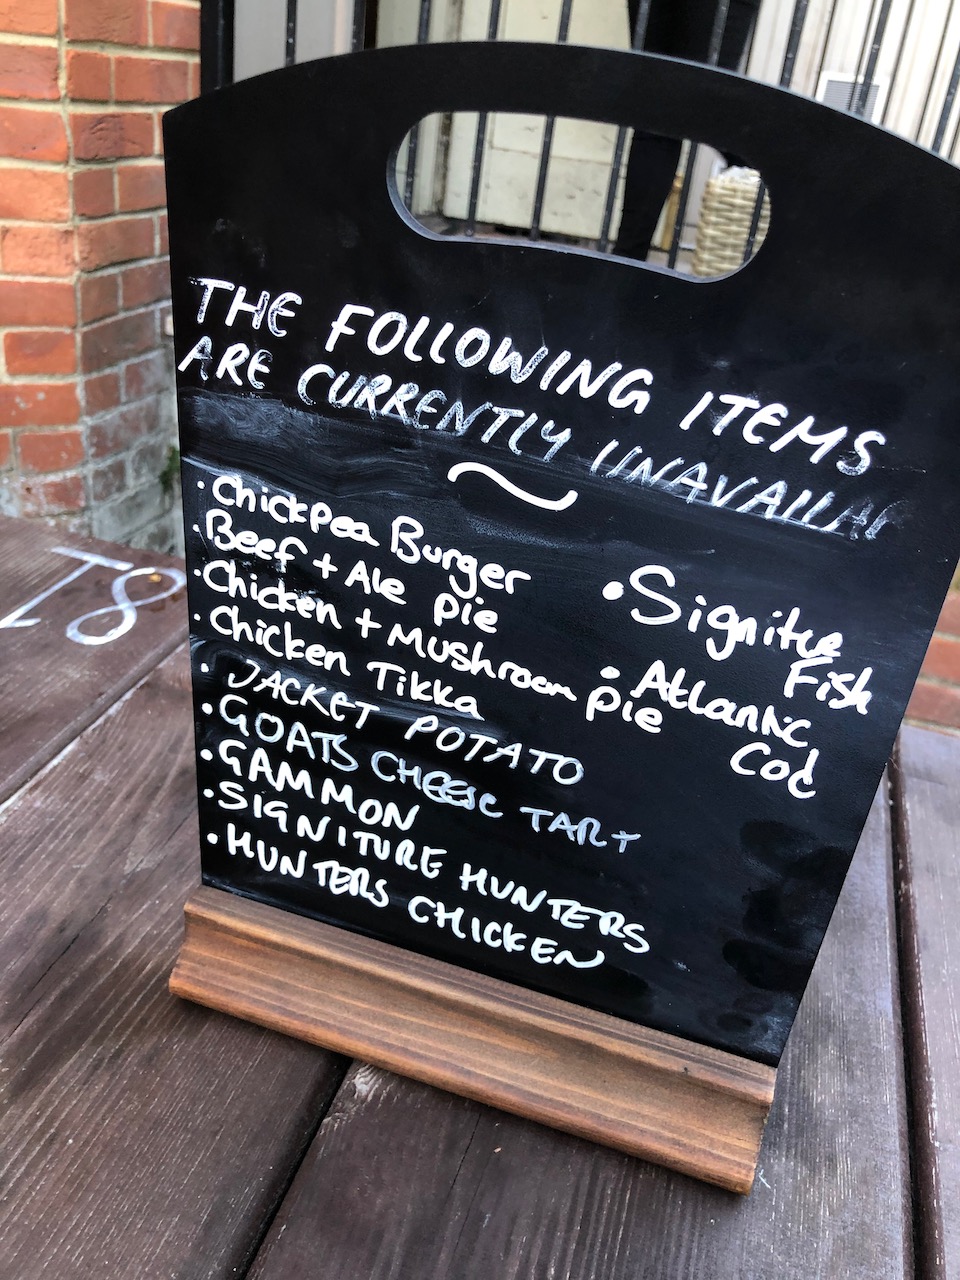 THE FOLLOWING ITEMS
ARE CURRENTLY UNAVAILAB
~
• Chickpea Burger
• Beef + Ale Pie
• Chicken + Mushroom Pie
• Chicken Tikka
• JACKET POTATO
• GOATS CHEESE TART
• GAMMON
• SIGNITURE HUNTERS
• HUNTERS CHICKEN
• Signiture
Fish
• Atlantic
Cod
T8